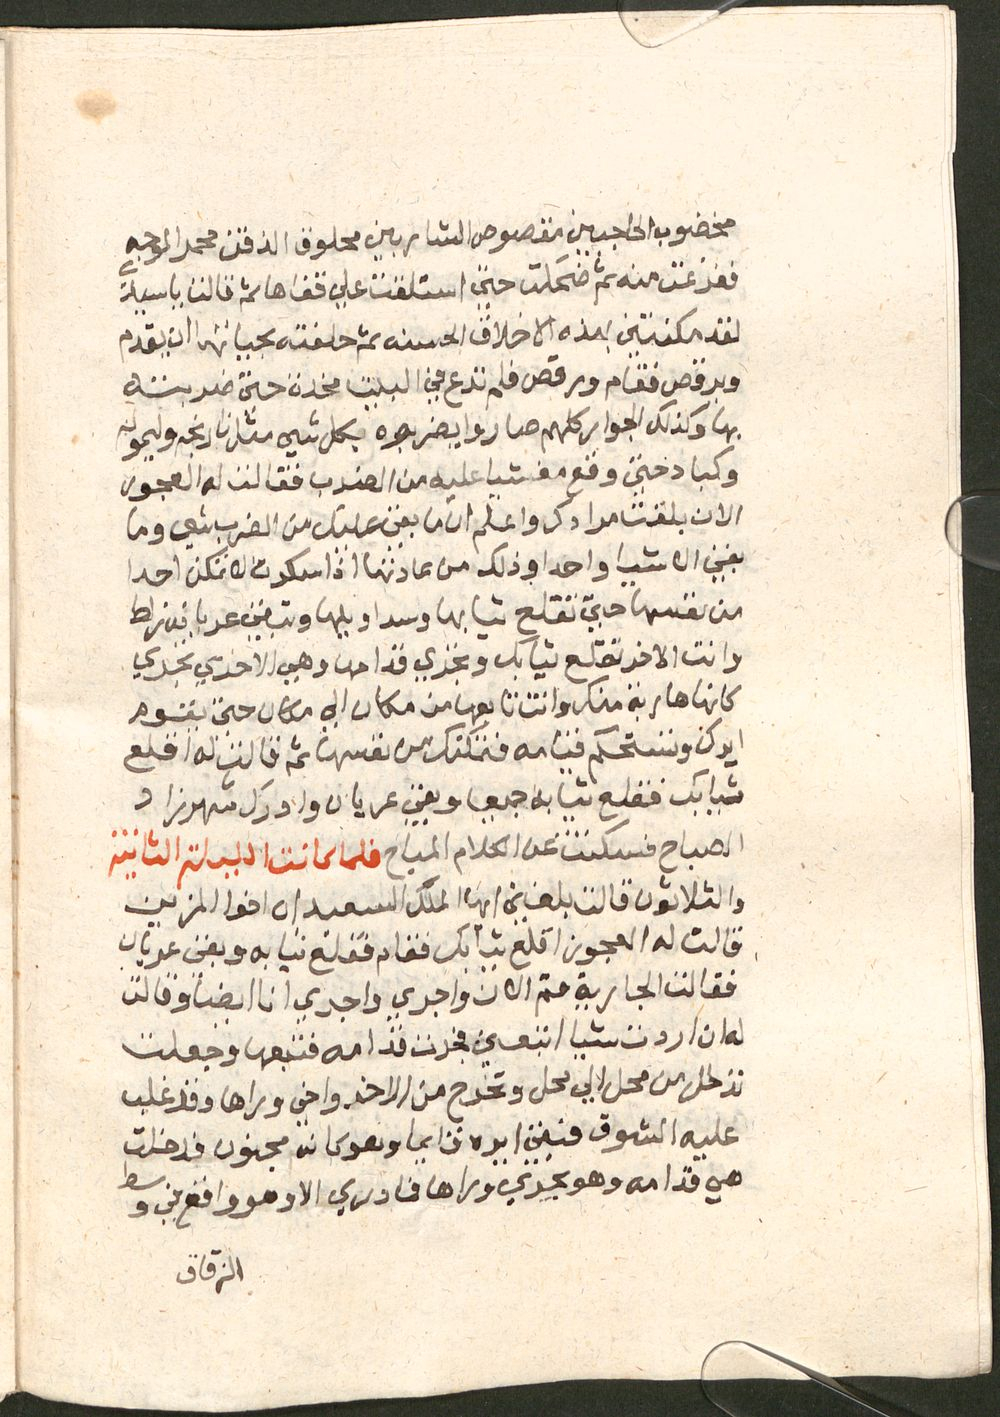 مخضوب الحاجبين مقصوص الشاربين محلوق الذقن محمر الوجه
ففزعت منه ثم ضحكت حتى استلقت علي قفاها ثم قالت يا سيدي
لقد ملكتني بهذه الاخلاق الحسنه ثم حلفته بحياتها ان يقوم
ويرقص فقام ورقص فلم تدع في البيت مخدة حتى ضربته
بها وكذلك الجوار كلهم صاروا يضربوه بكل شي مثل نارنجه وليمونه
وكباد حتى وقع مغشيا عليه من الضرب فقالت له العجوز
الان بلغت مرادك واعلم ان ما بقي عليك من الضرب شي وما
بقي الا شيا واحدا وذلك من عادتها اذا سكرت لا تمكن احدا
من نفسها حتى تقلع ثيابها وسراويلها وتبقى عريانه زلط
وانت الاخر تقلع ثيابك وتجري قدامها وهي الاخري تجري
كانها هاربة منك وانت تابعها من مكان الي مكان حتى يقوم
ايرك وتستحكم قيامه فتمكنك من نفسها ثم قالت له اقلع
ثيابك فقلع ثيابه جميعا وبقي عريان وادرك شهرزاد
الصباح فسكتت عن الكلام المباح فلما كانت الليلة الثانية
والثلاثون قالت بلغني ايها الملك السعيد ان اخوا المزين
قالت له العجوز اقلع ثيابك فقام فقلع ثيابه وبقي عريان
فقالت الجارية قم الان واجري واجري انا ايضا وقالت
له ان اردت شيا اتبعني فجرت قدامه فتبعها وجعلت
تدخل من محل الي محل وتخرج من الاخر واخي وراها وقد غلب
عليه الشوق فبقي ايره قايما وهو كانه مجنون فدخلت
هي قدامه وهو يجري وراها فما دري الا وهو واقع في وسط
الزقاق